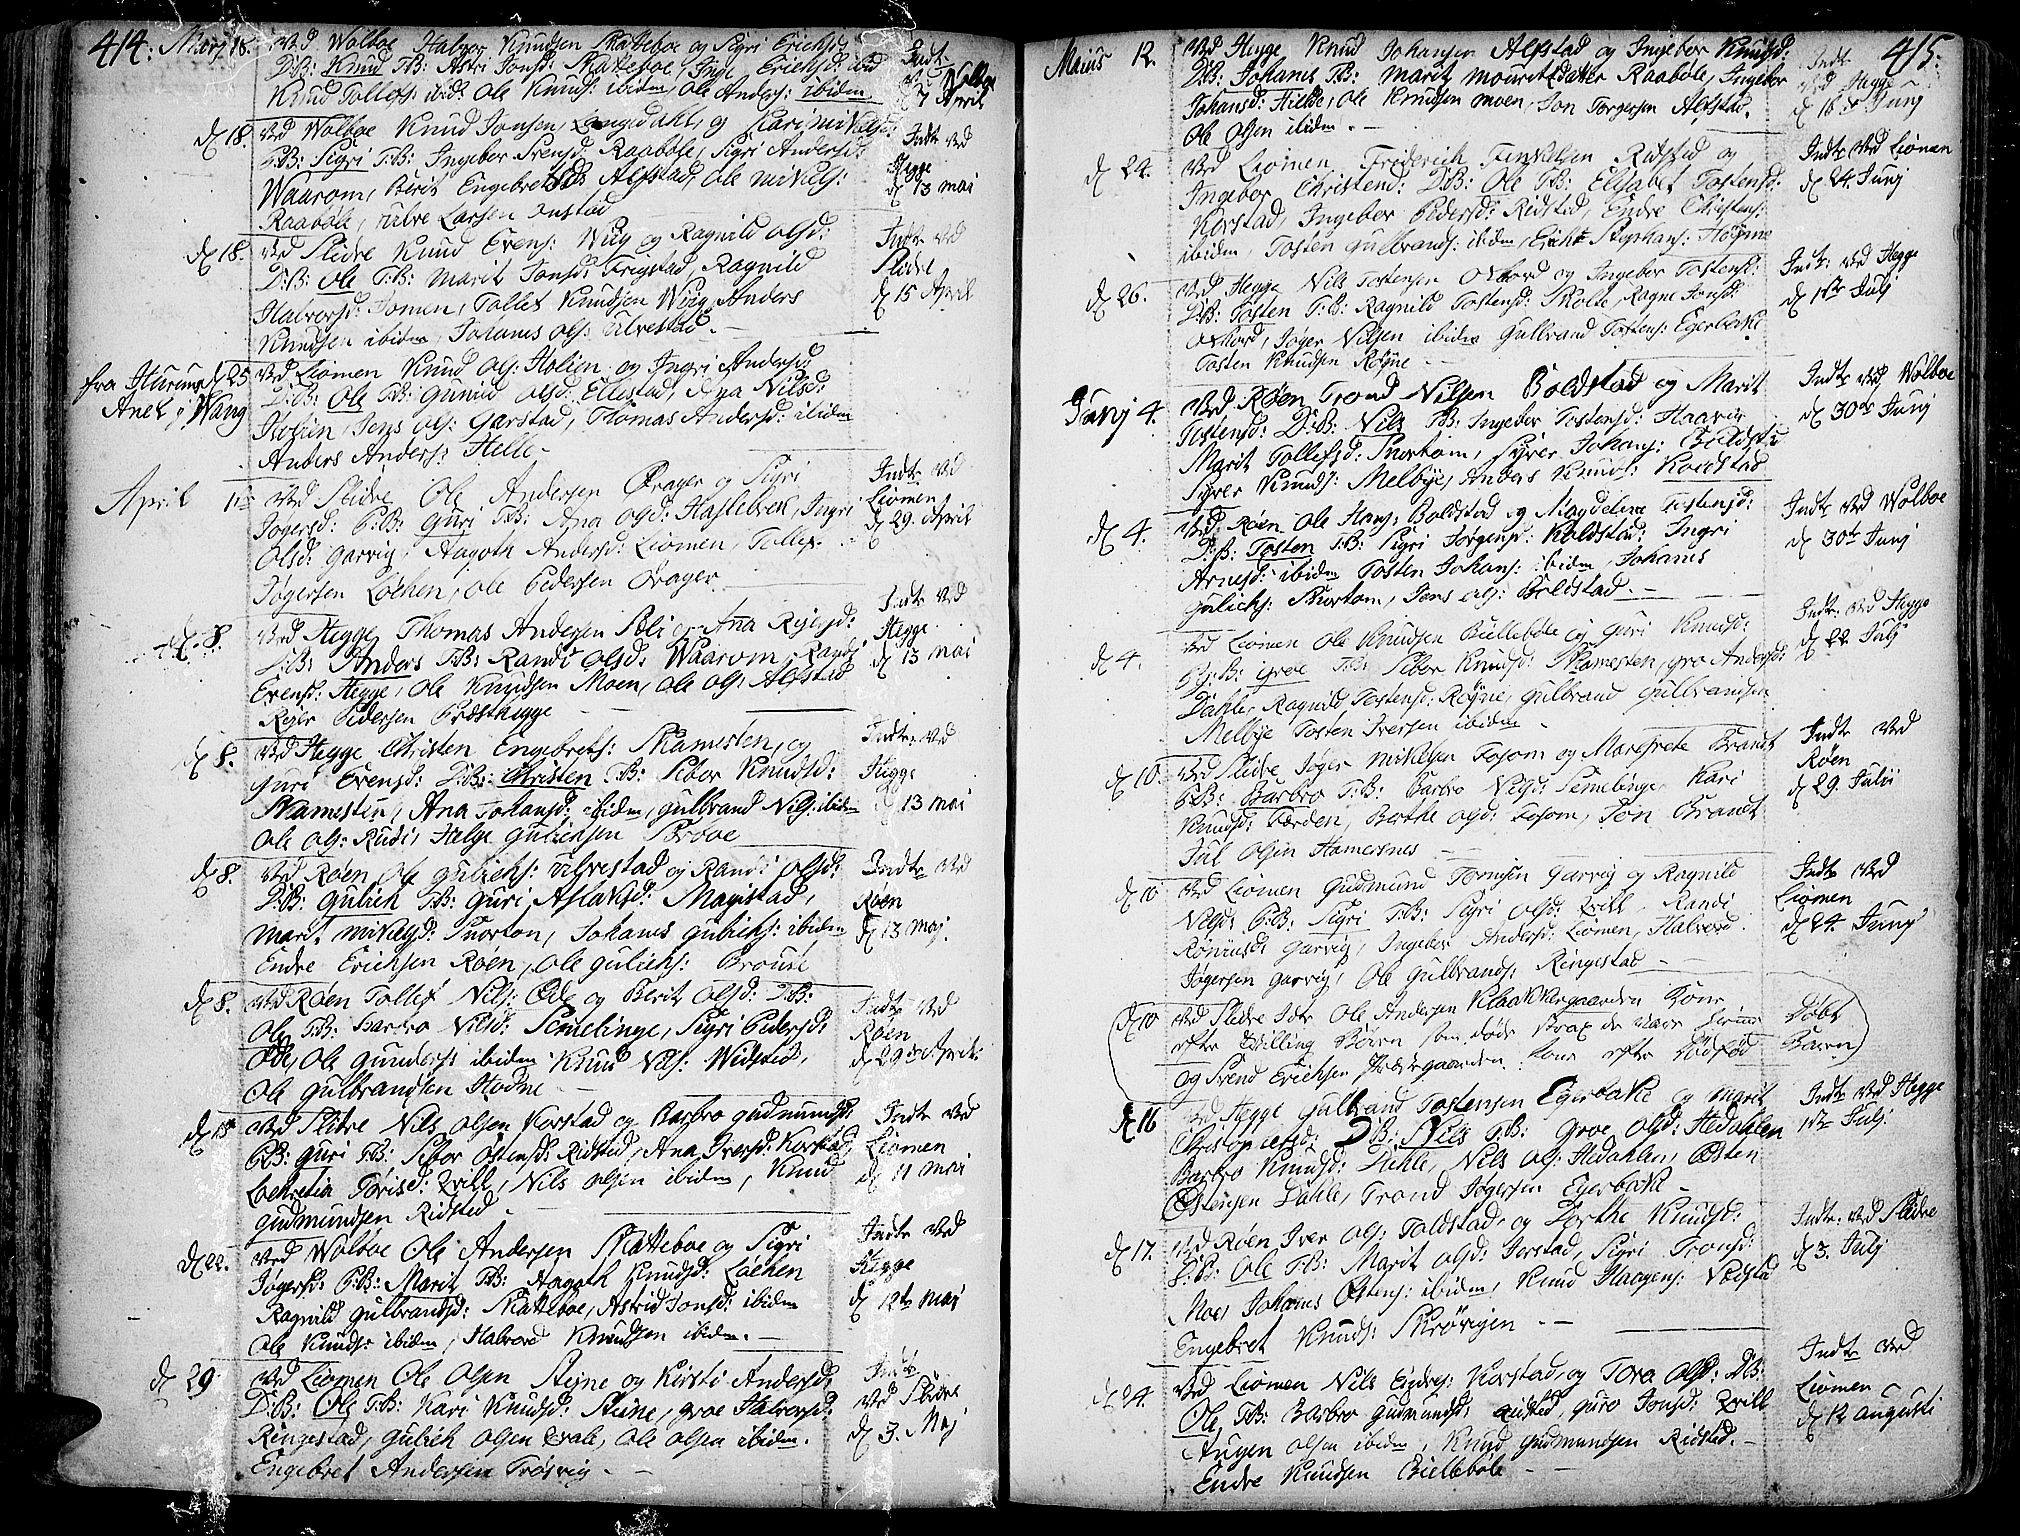 414.
Marj 18. ved Wolboe Halvor Knudsen Skatteboe og Sigri Erichsd:
D:B: Knud T:B: Astri Jonsd: Skatteboe, Inge Erichsd: ibid
Knud Tollefs: ibid: Ole Knuds: ibidem, Ole Anders: ibidem
Indt: ved Wolboe d 7 April
d 18. ved Wolboe Knud Jonsen, og Kari Mikelsd:
P:B: Sigri T:B: Ingebor Svensd: Raabøle, Sigri Andersd:
Waarom, Berit Engebretsd: Alfstad, Ole Mikels:
Raabøle, Larsen
Indtr ved Hegge d 13 mai
d 18. ved Slidre Knud Evens: Wiig og Ragnild Olsd:
D:B: Ole T:B: Marit Jonsd: Frigstad, Ragnild
Halvorsd: Jomen, Tollef Knudsen Wiig, Anders
Knudsen ibidem, Johanes Ols: Ulvestad. -
Indtr ved Slidre d 15 April
fra Hurum Anex j Wang
d 25 ved Liomen Knud Ols: Holien og Ingri Andersd:
D:B: Ole T:B: Gunild Olsd: Ellestad, Ana Nilsd:
Holien, Jens Ols: Garstad, Thomas Anders: ibidem
Anders Anders: Helle -
April 11 ved Slidre Ole Andersen Ørager og Sigri
Jøgersd: P:B: Guri T:B: Ana Olsd: Haslebrek, Ingri
Olsd: Garvig, Aagoth Andersd: Liomen, Tollef
Jøgersen Løchen, Ole Pedersen Ørager
Indtr ved Liomen d 29 April
d 8. ved Hegge Thomas Andersen Søli og Ana Rejersd:
D:B: Anders T:B: Randi Olsd: Waarom, Randi
Evensd: Hegge, Ole Knudsen Moen, Ole Ols: Alfstad
Rejer Pedersen Præsthegge
Indtr ved Hegge d 13 mai
d 8. ved Hegge Christen Engebrets: Skamesten, og
Guri Evensd: D:B: Christen T:B: Sibor Knudsd:
Skamesten, Ana Johansd: ibidem, Gulbrand Nils: ibidem
Ole Ols: Rudi, Helge Gulichsen
Indtr: ved Hegge d 13 mai
d 8. ved Røen Ole Gulichs: Ulvestad og Randi Olsd:
D:B: Gulich T:B: Guri Aslaksd: Magistad,
Marit Mikelsd: Snortom, Johanes Gulichs: ibidem
Endre Erichsen Røen, Ole Gulichs:
Indtr ved Røen d 13 maj.
d 8. ved Røen Tollef Nils: Øde og Berit Olsd: D:B:
Ole T:B: Barbro Nilsd: Semelinge, Sigri Pedersd:
Øde, Ole Gunders: ibidem Knud Nils:
Ole Gulbrandsen Hodne -
Indtr ved Røen d 29 April:
d 15 ved Slidre Nils Olsen Korstad og Barbro Gudmundsd:
P:B: Guri T:B: Sibor Østensd: Ridstad, Ana Iversd: Korstad,
Lochretia Jørisd: Qvill, Nils Olsen ibidem, Knud
Gudmundsen Ridstad -
Indtr ved Liomen d 11 mai
d 22. ved Wolboe Ole Andersen Skatteboe og Sigri
Jøgersd: P:B: Marit T:B: Aagoth Knudsd: Løchen
Ragnild Gulbrandsd: Skatteboe, Astrid Jonsd: ibidem
Ole Knuds: ibidem, Halvord Knudsen ibidem. -
Indtr ved Hegge d 12te maj
d 29. ved Liomen Ole Olsen Stejne og Kirsti Andersd:
D:B: Ole T:B: Kari Knudsd: Steine, Groe Halvorsd:
Ringestad, Gulich Olsen Qvale, Ole Olsen ibidem.
Engebret Andersen Trøsvig -
Indtr ved Slidre d 3. Maj
415.
Maius 12. ved Hegge Knud Johansen Alfstad og Ingebor Knudsd:
D:B: Johanes T:B: Marit Mouritzdatter Raabøle, Ingebor
Johansd: Hielde, Ole Knudsen Moen, Jon Torgersen Alfstad.
Ole Olsen ibidem. -
Indt ved Hegge d 16 Junj
d 22. ved Liomen Friderich Finkelsen Ridstad og
Ingebor Christend: D:B: Ole T:B: Elisabet Tostensd:
Korstad, Ingebor Pedersd: Ridstad, Endre Christens:
ibidem, Tosten Gulbrands: ibidem, Erich Stephans: Høgne
Indtr ved Liomen d 24 Junj
d 26. ved Hegge Nils Tostensen og Ingebor Tostensd:
D:B: Tosten T:B: Ragnild Tostensd: Skolte, Ragne Jonsd:
Jøger Nilsen ibidem Gulbrand Tostens: Egerbake
Tosten Knudsen Rogne -
Indtr ved Hegge d 1ste Julj
Junj 4. ved Røen Trond Nilsen Boldstad og Marit
Tostensd: D:B: Nils T:B: Ingebor Tostensd: Haarig
Marit Tollefsd: Snortom, Syver Johans: Boldstad
Syver Knuds: Melbye, Anders Knuds: Koldstad
Indtr ved Wolboe d 30te Junj
d 4. ved Røen Ole Hans: Boldstad og Magdelene Tostensd:
D:B: Tosten T:B: Sigri Jørgensd: Koldstad, Ingri
Arnesd: ibidem Tosten Johans: ibidem, Johanes
Gulichs: Snortom, Jens Ols: Boldstad. -
Indtr ved Wolboe d 30te Junj
d 4. ved Liomen Ole Knudsen Biellebøle og Guri Knudsd:
P:B: Groe T:B: Sibor Knudsd: Skamesten, Gro Andersd:
Dahle, Ragnild Tostensd: Rogne, Gulbrand Gulbrandsen
Melbye Tosten Iversen ibidem -
Indtr. ved Hegge d 22 Julj
d 10. ved Slidre Jøger Mikelsen Fosom og Margrete Brandt
P:B: Barbro T:B: Barbro Nilsd: Semelinge, Kari
Knudsd: Førden, Berthe Olsd: Fosom, Jon Brandt
Jul Olsen Hamersnes -
Indtr ved Røen d 29. Julii
d 10 ved Liomen Gudmund Tomesen Garvig og Ragnild
Nilsd: P:B: Sigri T:B: Sigri Olsd: Qvill, Randi
Rønnisd: Garvig, Ingebor Andersd: Liomen, Halvord
Jøgersen Garvig, Ole Gulbrands: Ringestad -
Indtr ved Liomen d 24. Junj
d 10 ved Slidre Indtr Ole Andersen Klokkergaarden Kone
efter Tvilling Børn som døde strax de vare
og Svend Erichsen Kone efter dødfød
Døbt Barn
d 16 ved Hegge Gulbrand Tostensen Egerbake og Marit
Christophersd: D:B: Nils T:B: Groe Olsd: Hedahlen
Barbro Knudsd: Dahle, Nils Ols: Hedahlen, Østen
Østensen Dahle, Trond Jøgersen Egerbake -
Indtr ved Hegge 1ste Julj
d 17. ved Røen Iver Ols: Joldstad, og Dorthe Knudsd:
D:B: Ole T:B: Marit Olsd: Jorstad, Sigri Tronsd:
Moe, Johanes Østens: ibidem, Knud Haagens:
Engebret Knuds: Skrøvigen - -
Indtr. ved Slidre d 3. Julj
d 24. ved Liomen Nils Endres: Korstad, og Tora Olsd: D:B:
Ole, T:B: Barbro Gudmundsd: Ridsted, Guro Jonsd: Qvill
Augen Olsen ibidem, Knud Gudmundsen Ridstad. -
Endre Knudsen Biellebøle -
Indtr ved Liomen d 12 Augusti